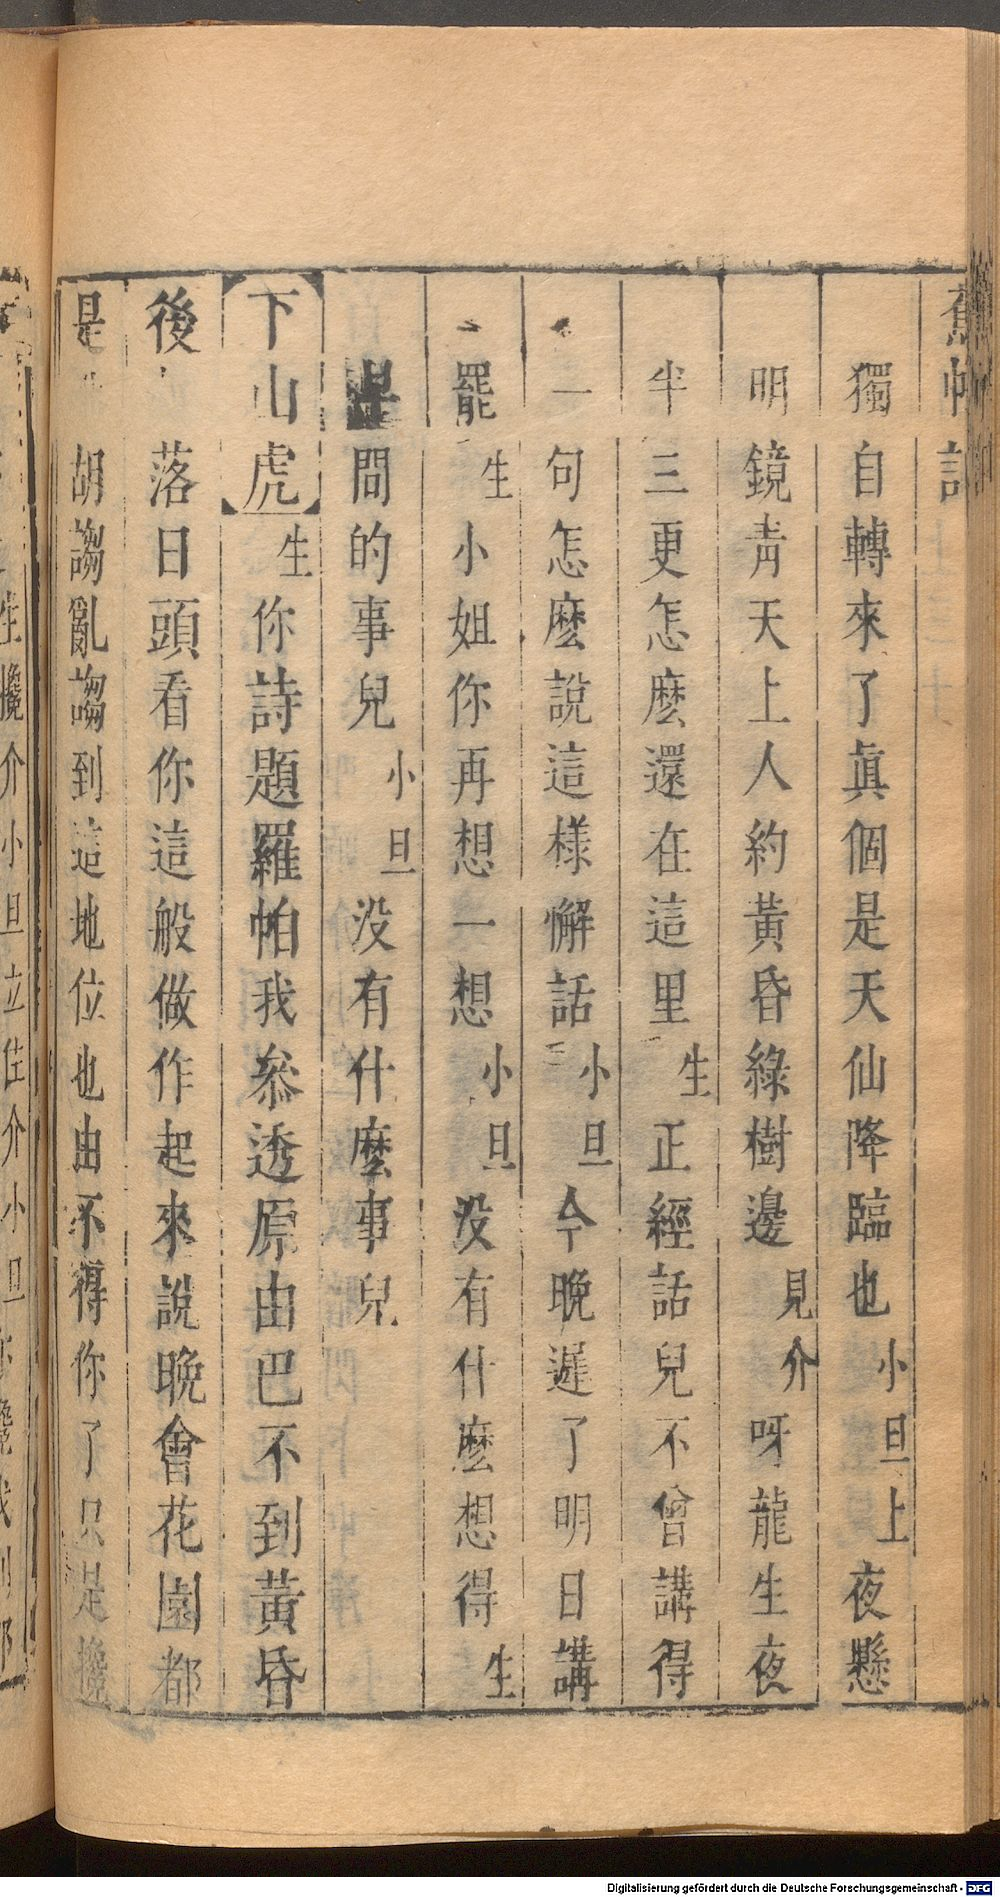 蕉帕記
獨自轉來了眞個是天仙降臨也小旦上夜懸
明鏡靑天上人約黃昏綠樹邊見介呀龍生夜
半三更怎麽還在這里生正經話兒不曾講得
一句怎麽說這樣懈話小旦今晚遲了明日講
罷生小姐你再想一想小旦没有什麽想得生
問的事兒小旦没有什麽事兒
下山虎生你詩題羅帕我叅透原由巴不到黃昏
後落日頭看你這般做作起來說晚會花園都
是胡謅亂謅到這地位也由不得你了只是攙
生攙介小旦立住介小旦
Digitalisierung gefördert durch die Deutsche Forschungsgemeinschaft - DFG